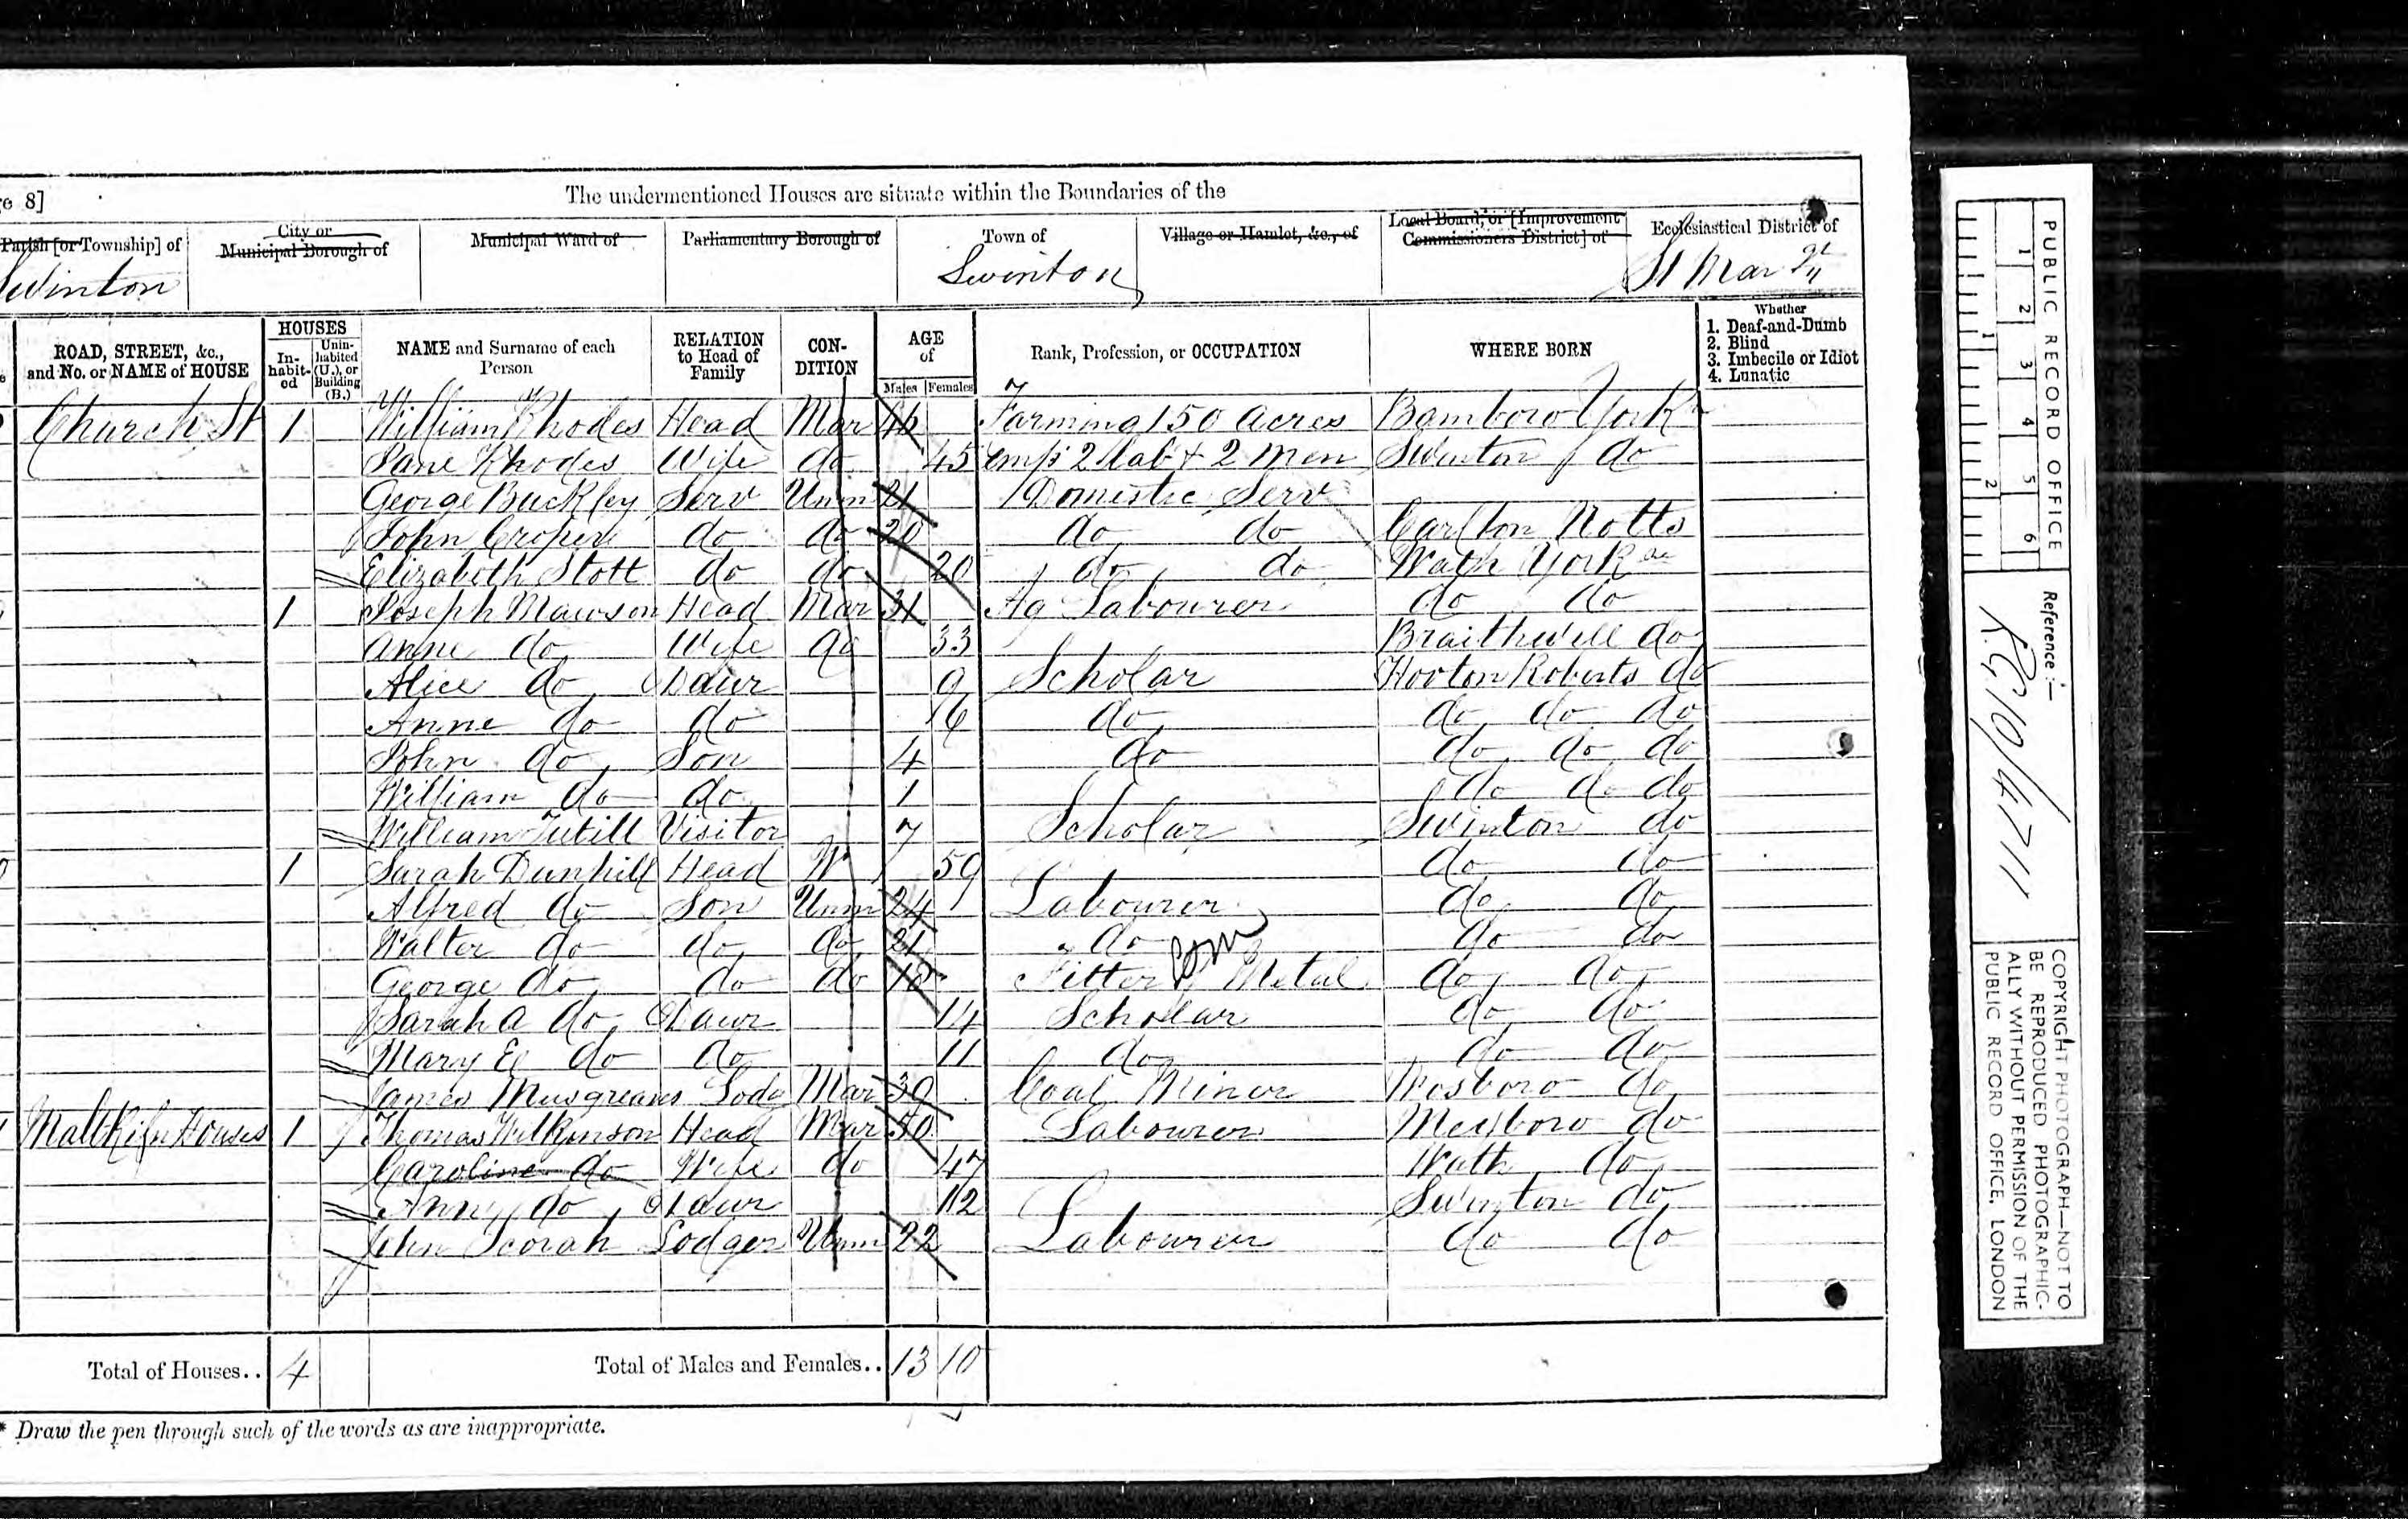 ge 8]
The undermentioned Houses are situate within the Boundaries of the
Parish [or Township] of
City or Municipal Borough of
Municipal Ward of
Parliamentary Borough of
Town of
Village or Hamlet, &c., of
Local Board, or [Improvement Commissioners District] of
Ecclesiastical District of
Swinton Swinton St Mar gt
ROAD, STREET, &c., and No. or NAME of HOUSE
HOUSES
In-habit-ed
Unin-habited (U.), or Building (B.)
NAME and Surname of each Person
RELATION to Head of Family
CON-DITION
AGE of
Males Females
Rank, Profession, or OCCUPATION
WHERE BORN
Whether
1. Deaf-and-Dumb
2. Blind
3. Imbecile or Idiot
4. Lunatic
Church St 1 William Rhodes Head Mar 46 Farming 150 Acres Bamboro York
Jane Rhodes Wife do 45 emp 2 lab + 2 men Swinton do
George Buckley Serv Unm 21 Domestic Serv
John Croper do do 20 do do Carlton Notts
Elizabeth Stott do do 20 do do Wath York
1 Joseph Mawson Head Mar 31 Ag Labourer do do
Anne do Wife do 33 Braithwell do
Alice do Daur 9 Scholar Hooton Roberts do
Anne do do 6 do do do do
John do Son 4 do do do do
William do do 1 do do do
William Tutill Visitor 7 Scholar Swinton do
1 Sarah Dunhill Head W 59 do do
Alfred do Son Unm 24 Labourer do do
Walter do do do 21 do do do
George do do do 18 Fitter Metal do do
Sarah A do Daur 14 Scholar do do
Mary E do do 11 do do do
James Musgreaves Lodg Mar 30 Coal Miner Wosboro do
Maltkiln Houses 1 Thomas Wilkinson Head Mar 50 Labourer Mexboro do
Caroline do Wife do 47 Wath do
Ann do Daur 12 Swinton do
John Scorah Lodger Unm 22 Labourer do do
Total of Houses.. 4 Total of Males and Females.. 13 10
* Draw the pen through such of the words as are inappropriate.
PUBLIC RECORD OFFICE
1 2 3 4 5 6
1 2
Reference :-
R.G.10/4711
COPYRIGHT PHOTOGRAPH—NOT TO
BE REPRODUCED PHOTOGRAPHIC-
ALLY WITHOUT PERMISSION OF THE
PUBLIC RECORD OFFICE, LONDON